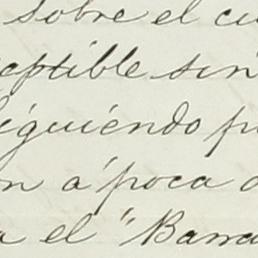 sobre el cu
ceptible sin
siguiendo p
n a poca d
a el "Barra